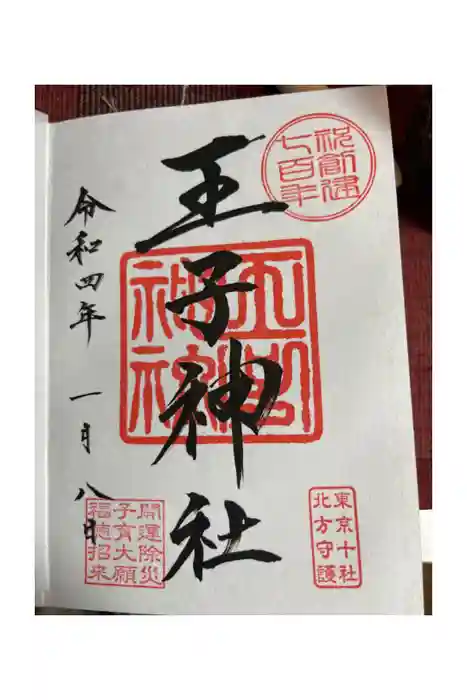 祝創建
七百年
王子神社
令和四年 一月八日
東京十社
北方守護
開運除災
子育大願
福徳招来